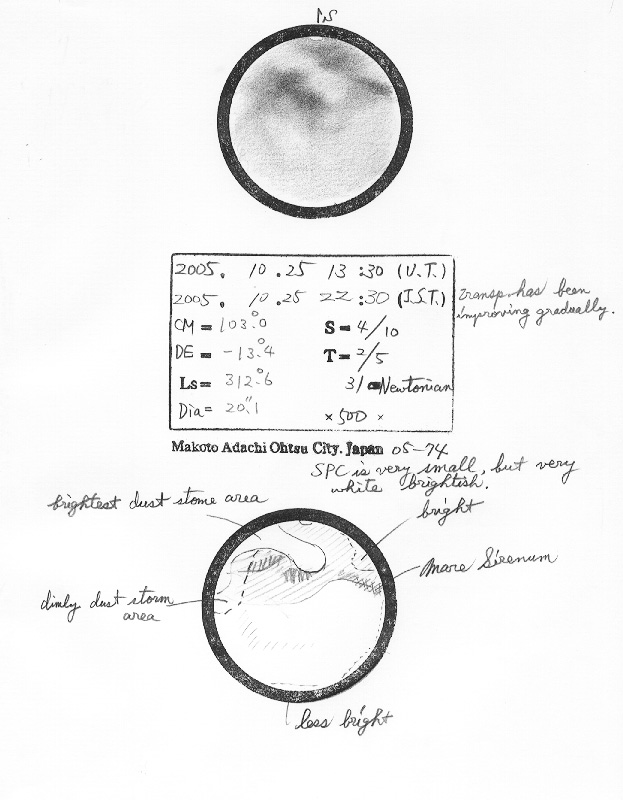 2005. 10.25 13:30 (U.T.)
2005. 10.25 22:30 (J.S.T.)
Transp. has been
improving gradually.
CM = 103.°0 S = 4/10
DE = -13.°4 T = 2/5
Ls = 312.°6 31 Newtonian
Dia = 20."1 × 500 ×
Makoto Adachi Ohtsu City. Japan 05-74
SPC is very small, but very
white brightish.
brightest dust stome area
bright
Mare Sirenum
dimly dust storm
area
less bright